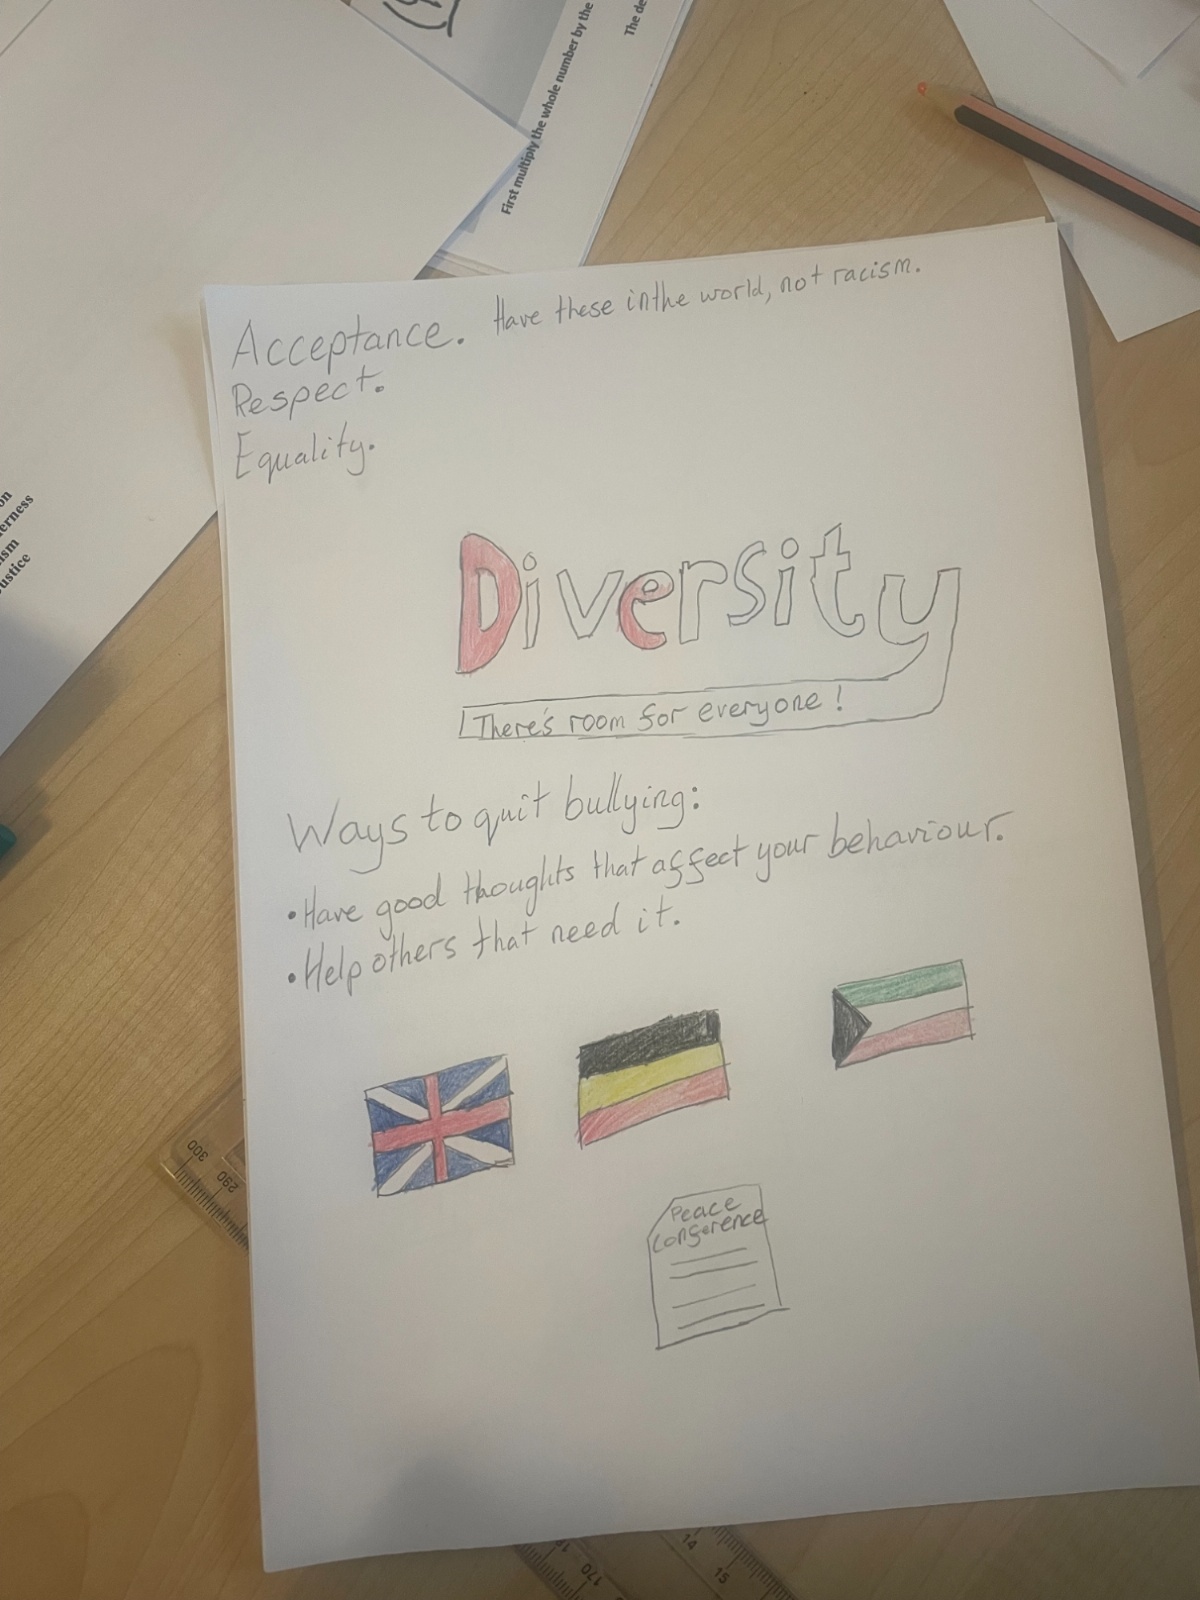 First multiply the whole number by the
The de
on
erness
ism
ustice
Acceptance. Have these inthe world, not racism.
Respect.
Equality.
Diversity
There's room for everyone!
Ways to quit bullying:
•Have good thoughts that affect your behaviour.
•Help others that need it.
Peace
Conference
300
290
170
14
15